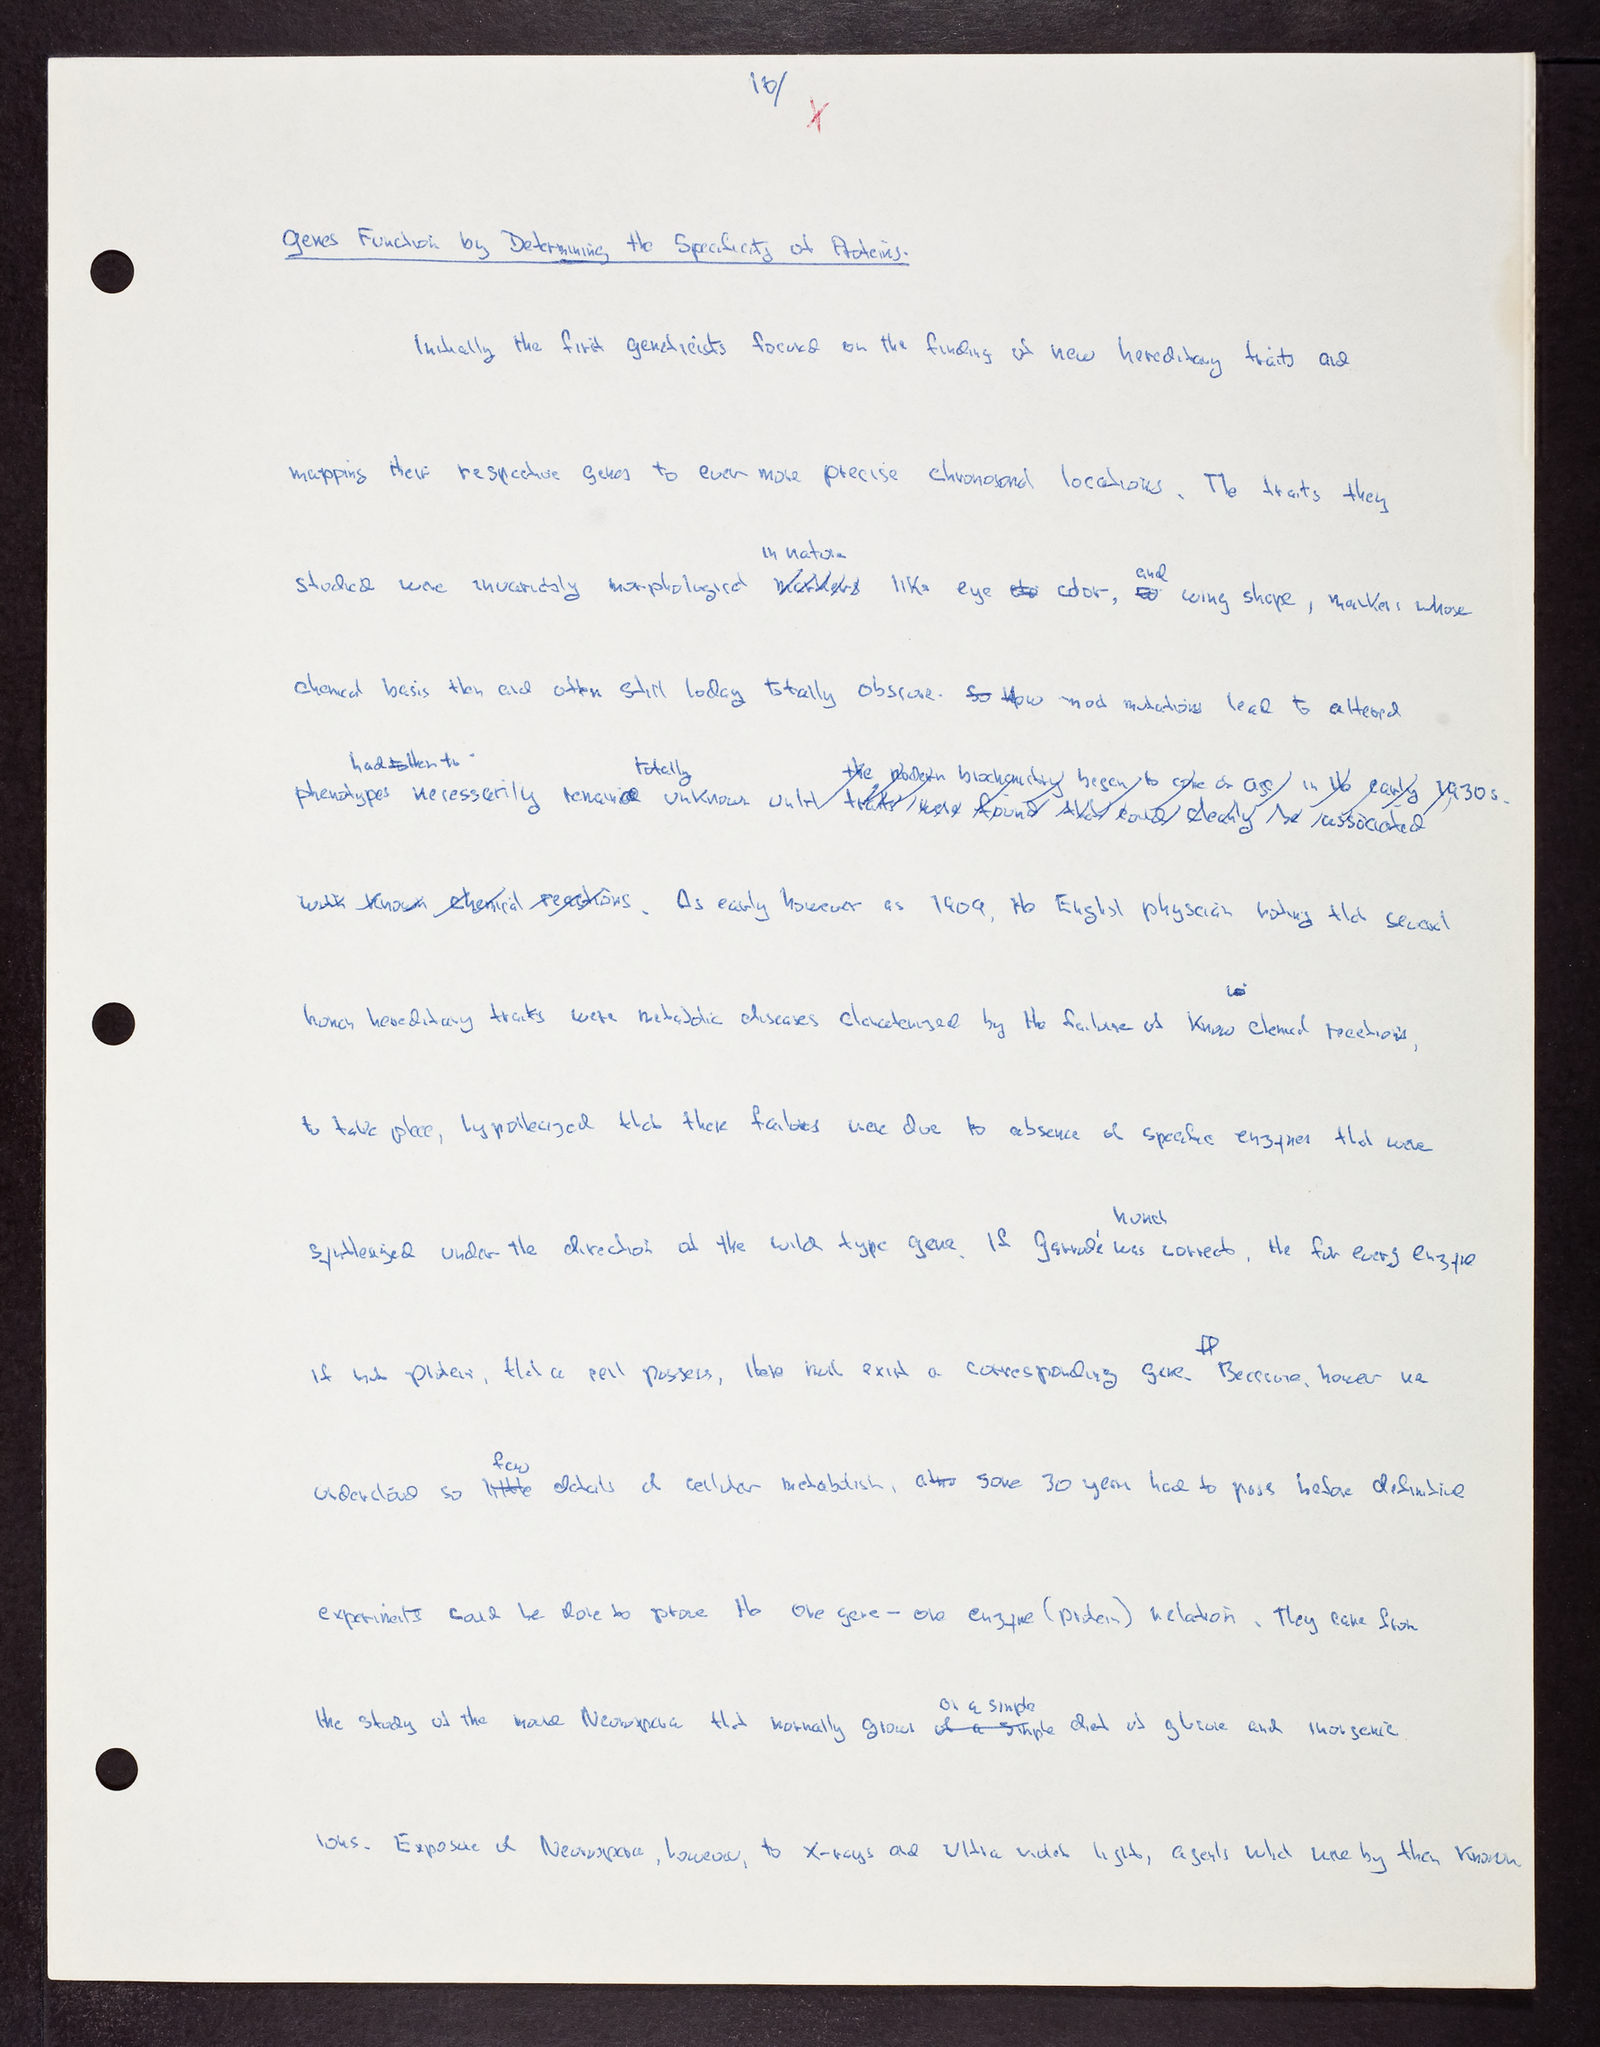 10/
Genes Function by Determining the Specificity of Proteins.
Initially the first geneticists focused on the finding of new hereditary traits and
mapping their respective genes to ever more precise chromosomal locations. The traits they
in nature and
studied were invariably morphological markers like eye color, wing shape, markers whose
chemical basis then and often still today totally obscure. So How most mutations lead to altered
had then to totally the modern biochemistry began to come of age in the early 1930s.
phenotypes necessarily remained unknown until traits were found that could clearly be associated
with known chemical reactions. As early however as 1909, the English physician noting that several
human hereditary traits were metabolic diseases characterized by the failure of known chemical reactions,
to take place, hypothesized that these failures were due to absence of specific enzymes that were
hunch
synthesized under the direction of the wild type gene. If Garrod's was correct, the for every enzyme
if not protein, that a cell possess, there must exist a corresponding gene. Because, however we
few
understood so little details of cellular metabolism, some 30 years had to pass before definitive
experiments could be done to prove the one gene – one enzyme (protein) relation. They came from
on a simple
the study of the mold Neurospora that normally grows of a simple diet of glucose and inorganic
ions. Exposure of Neurospora, however, to X-rays and ultra violet light, agents which were by then known